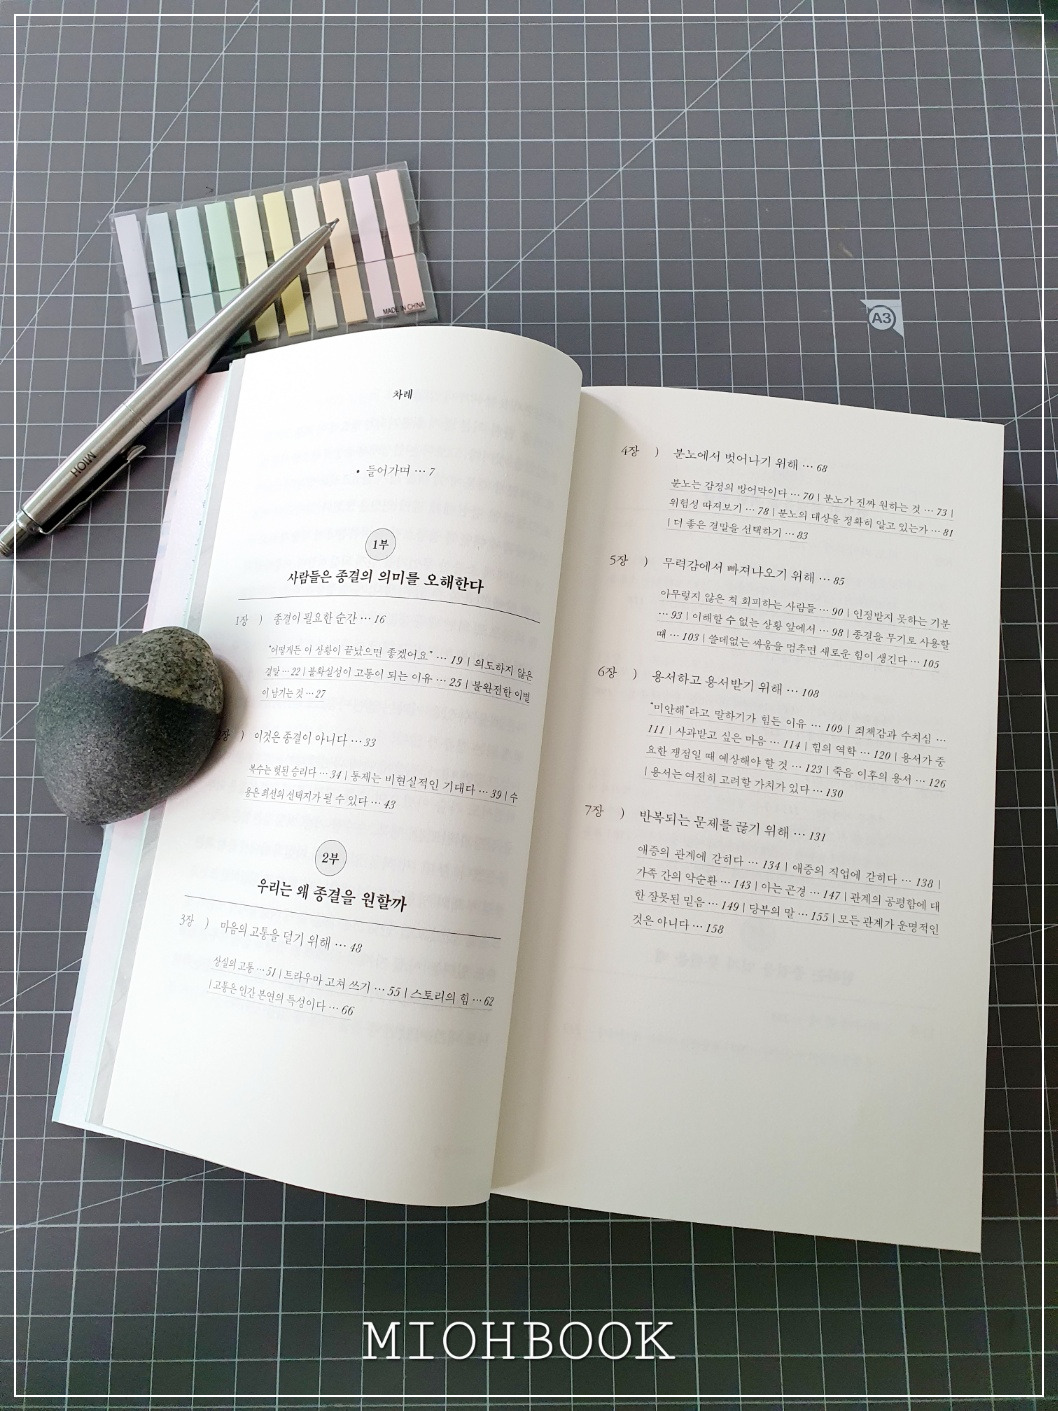 MADE IN CHINA
MIOH
A3
차례
• 들어가며 … 7
1부
사람들은 종결의 의미를 오해한다
1장 ) 종결이 필요한 순간 … 16
"어떻게든 이 상황이 끝났으면 좋겠어요" … 19 | 의도하지 않은
결말 … 22 | 불확실성이 고통이 되는 이유 … 25 | 불완전한 이별
이 남기는 것 … 27
장 ) 이것은 종결이 아니다 … 33
복수는 헛된 승리다 … 34 | 통제는 비현실적인 기대다 … 39 | 수
용은 최선의 선택지가 될 수 있다 … 43
2부
우리는 왜 종결을 원할까
3장 ) 마음의 고통을 덜기 위해 … 48
상실의 고통 … 51 | 트라우마 고쳐 쓰기 … 55 | 스토리의 힘 … 62
| 고통은 인간 본연의 특성이다 … 66
4장 ) 분노에서 벗어나기 위해 … 68
분노는 감정의 방어막이다 … 70 | 분노가 진짜 원하는 것 … 73 |
위험성 따져보기 … 78 | 분노의 대상을 정확히 알고 있는가 … 81
| 더 좋은 결말을 선택하기 … 83
5장 ) 무력감에서 빠져나오기 위해 … 85
아무렇지 않은 척 회피하는 사람들 … 90 | 인정받지 못하는 기분
… 93 | 이해할 수 없는 상황 앞에서 … 98 | 종결을 무기로 사용할
때 … 103 | 쓸데없는 싸움을 멈추면 새로운 힘이 생긴다 … 105
6장 ) 용서하고 용서받기 위해 … 108
"미안해"라고 말하기가 힘든 이유 … 109 | 죄책감과 수치심 …
111 | 사과받고 싶은 마음 … 114 | 힘의 역학 … 120 | 용서가 중
요한 쟁점일 때 예상해야 할 것 … 123 | 죽음 이후의 용서 … 126
| 용서는 여전히 고려할 가치가 있다 … 130
7장 ) 반복되는 문제를 끊기 위해 … 131
애증의 관계에 갇히다 … 134 | 애증의 직업에 갇히다 … 138 |
가족 간의 악순환 … 143 | 아는 곤경 … 147 | 관계의 공평함에 대
한 잘못된 믿음 … 149 | 당부의 말 … 155 | 모든 관계가 운명적인
것은 아니다 … 158
MIOHBOOK